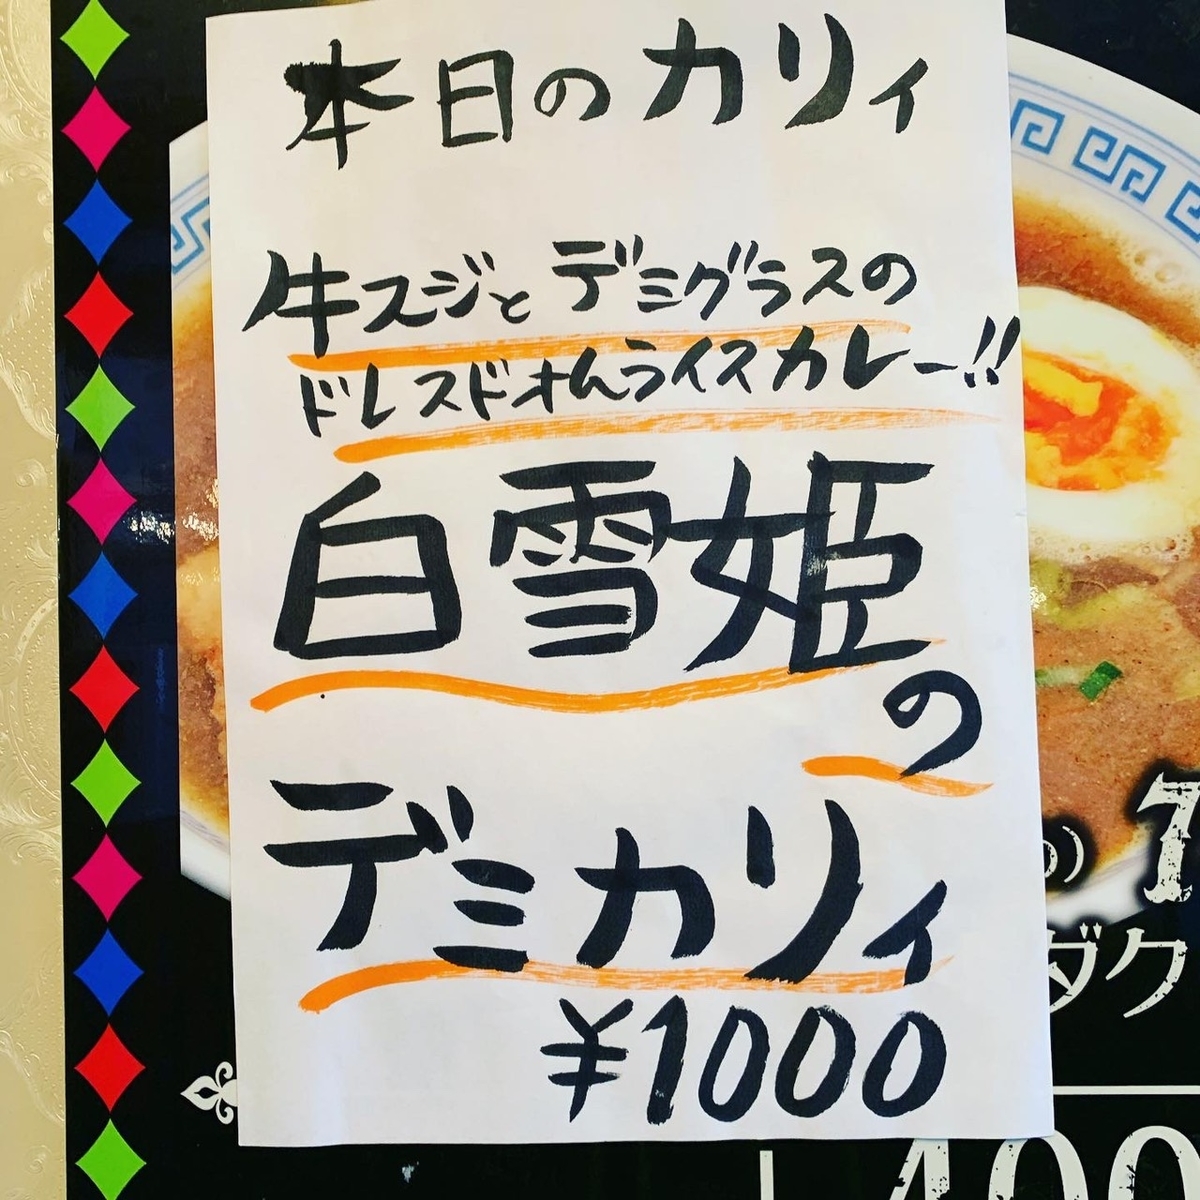 本日のカリィ
牛スジとデミグラスの
ドレスドオムライスカレー!!
白雪姫
の
デミカリィ
¥1000
ダク